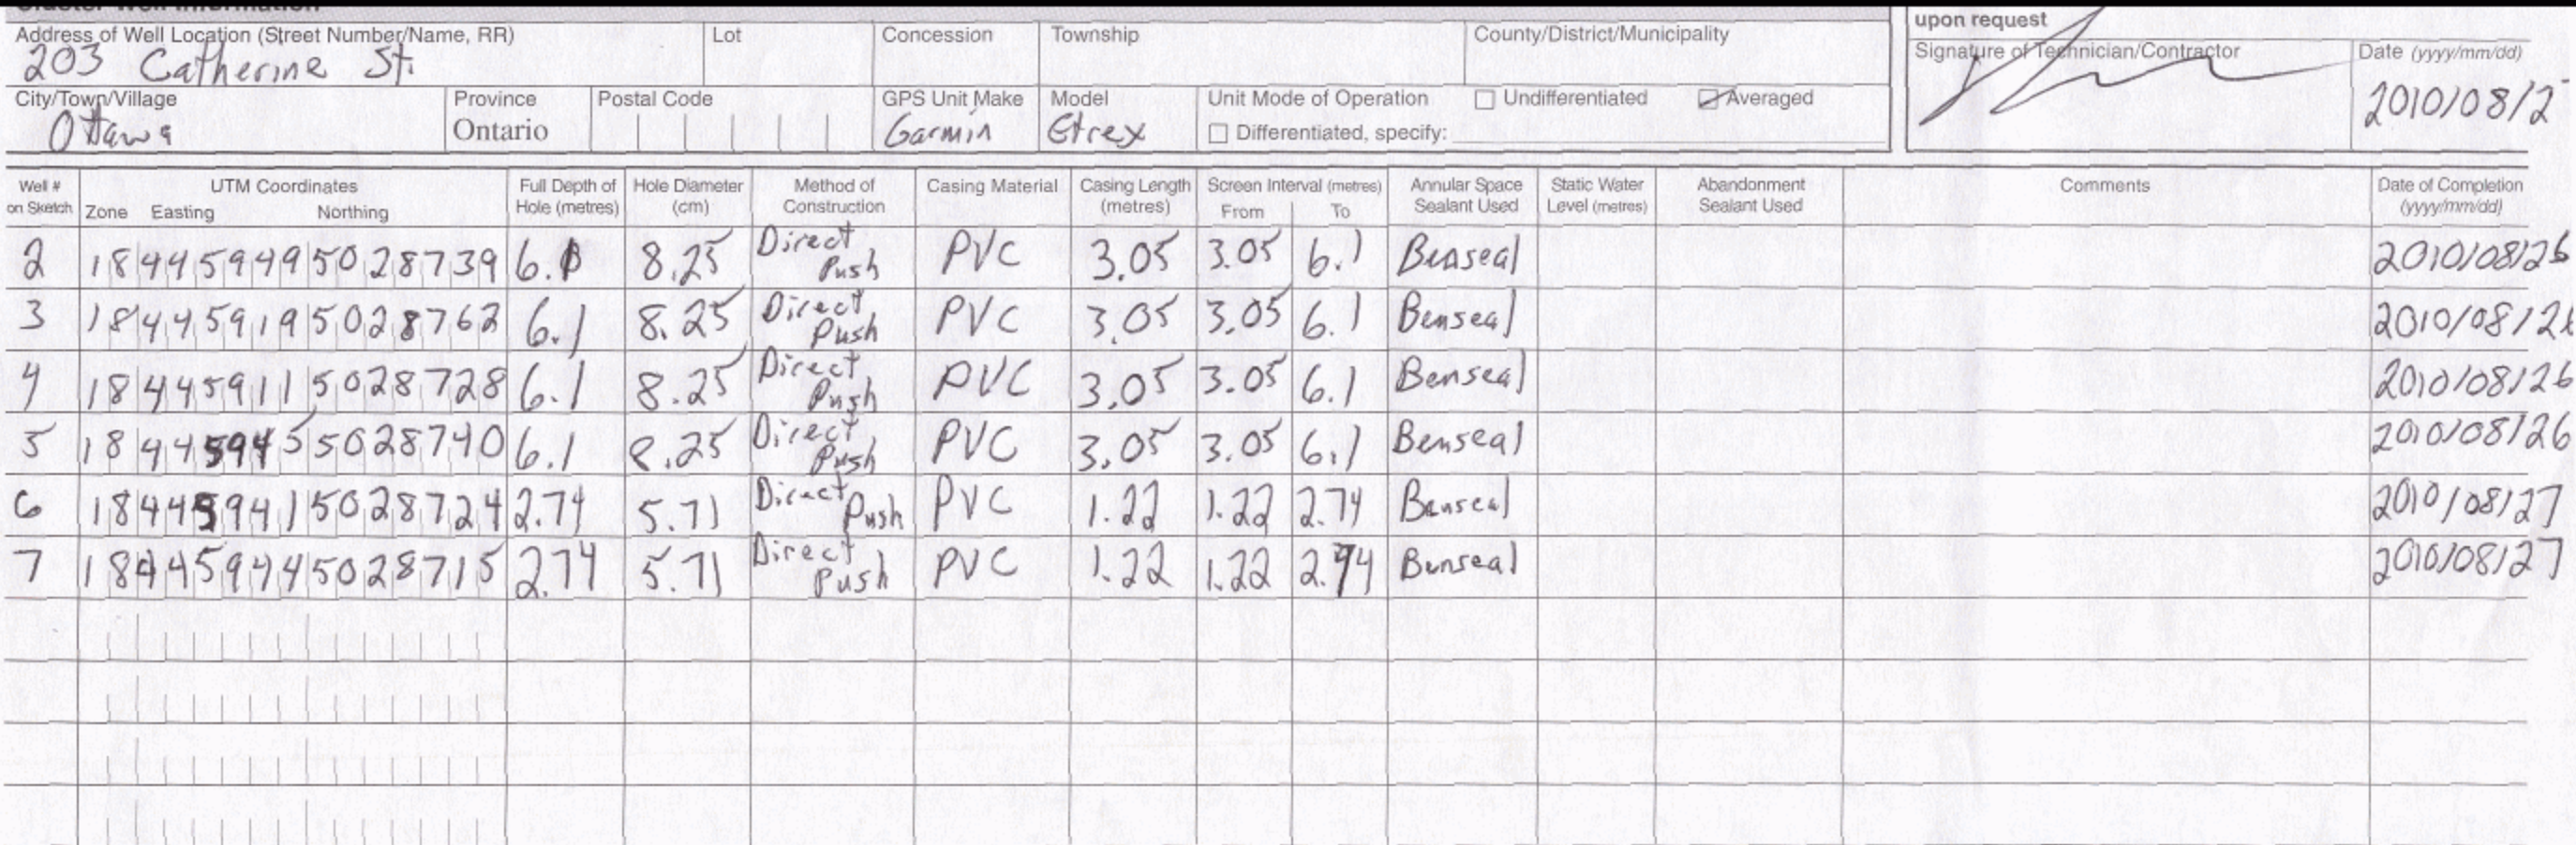 Cluster Well Information
Address of Well Location (Street Number/Name, RR) Lot Concession Township County/District/Municipality
203 Catherine St.
City/Town/Village Province Postal Code GPS Unit Make Model Unit Mode of Operation Undifferentiated Averaged
Ottawa Ontario Garmin Etrex Differentiated, specify:
upon request
Signature of Technician/Contractor Date (yyyy/mm/dd)
2010/08/2
Well # on Sketch UTM Coordinates Zone Easting Northing Full Depth of Hole (metres) Hole Diameter (cm) Method of Construction Casing Material Casing Length (metres) Screen Interval (metres) From To Annular Space Sealant Used Static Water Level (metres) Abandonment Sealant Used Comments Date of Completion (yyyy/mm/dd)
2 18 445949 5028739 6.1 8.25 Direct Push PVC 3.05 3.05 6.1 Benseal 2010/08/26
3 18 445919 5028762 6.1 8.25 Direct Push PVC 3.05 3.05 6.1 Benseal 2010/08/26
4 18 445911 5028728 6.1 8.25 Direct Push PVC 3.05 3.05 6.1 Benseal 2010/08/26
5 18 445945 5028740 6.1 8.25 Direct Push PVC 3.05 3.05 6.1 Benseal 2010/08/26
6 18 445941 5028724 2.74 5.71 Direct Push PVC 1.22 1.22 2.74 Benseal 2010/08/27
7 18 445944 5028715 2.74 5.71 Direct Push PVC 1.22 1.22 2.74 Benseal 2010/08/27